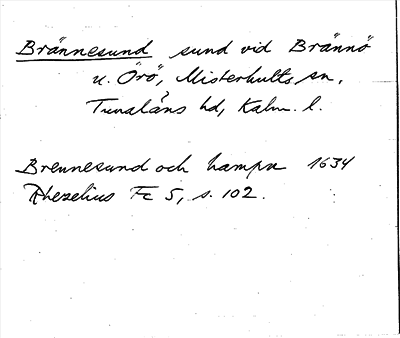 Brännesund sund vid Brännö
u. Örö, Misterhults sn,
Tunaläns hd, Kalm. l.
Brennesund och hampn 1634
Rhezelius Fc 5, s. 102.